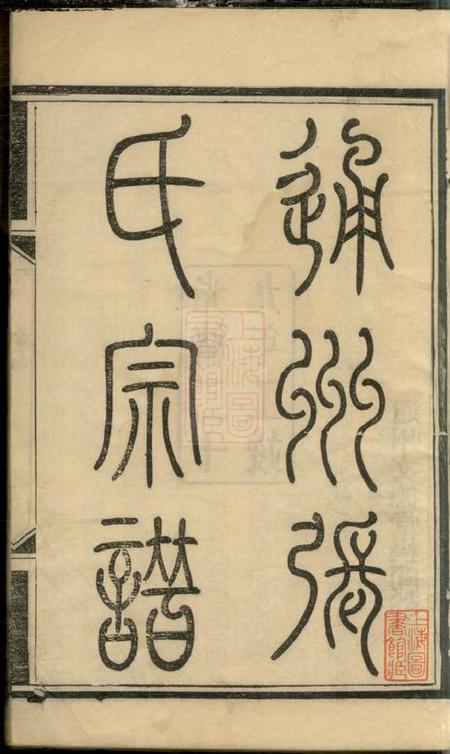 通州張
氏宗譜
上海圖
書館藏
上海圖
書館藏